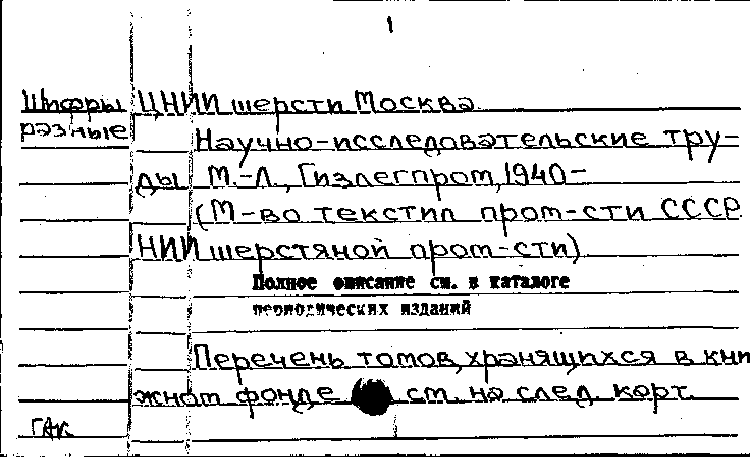 1
Шифры ЦНИИ шерсти Москва.
разные
Научно-исследовательские тру-
ды М.-Л., Гизлегпром, 1940-
(М-во текстил пром-сти СССР.
НИИ шерстяной пром-сти)
Полное описание см. в каталоге
периодических изданий
Перечень томов, хранящихся в кни
жном фонде см. на след. карт.
ГАК